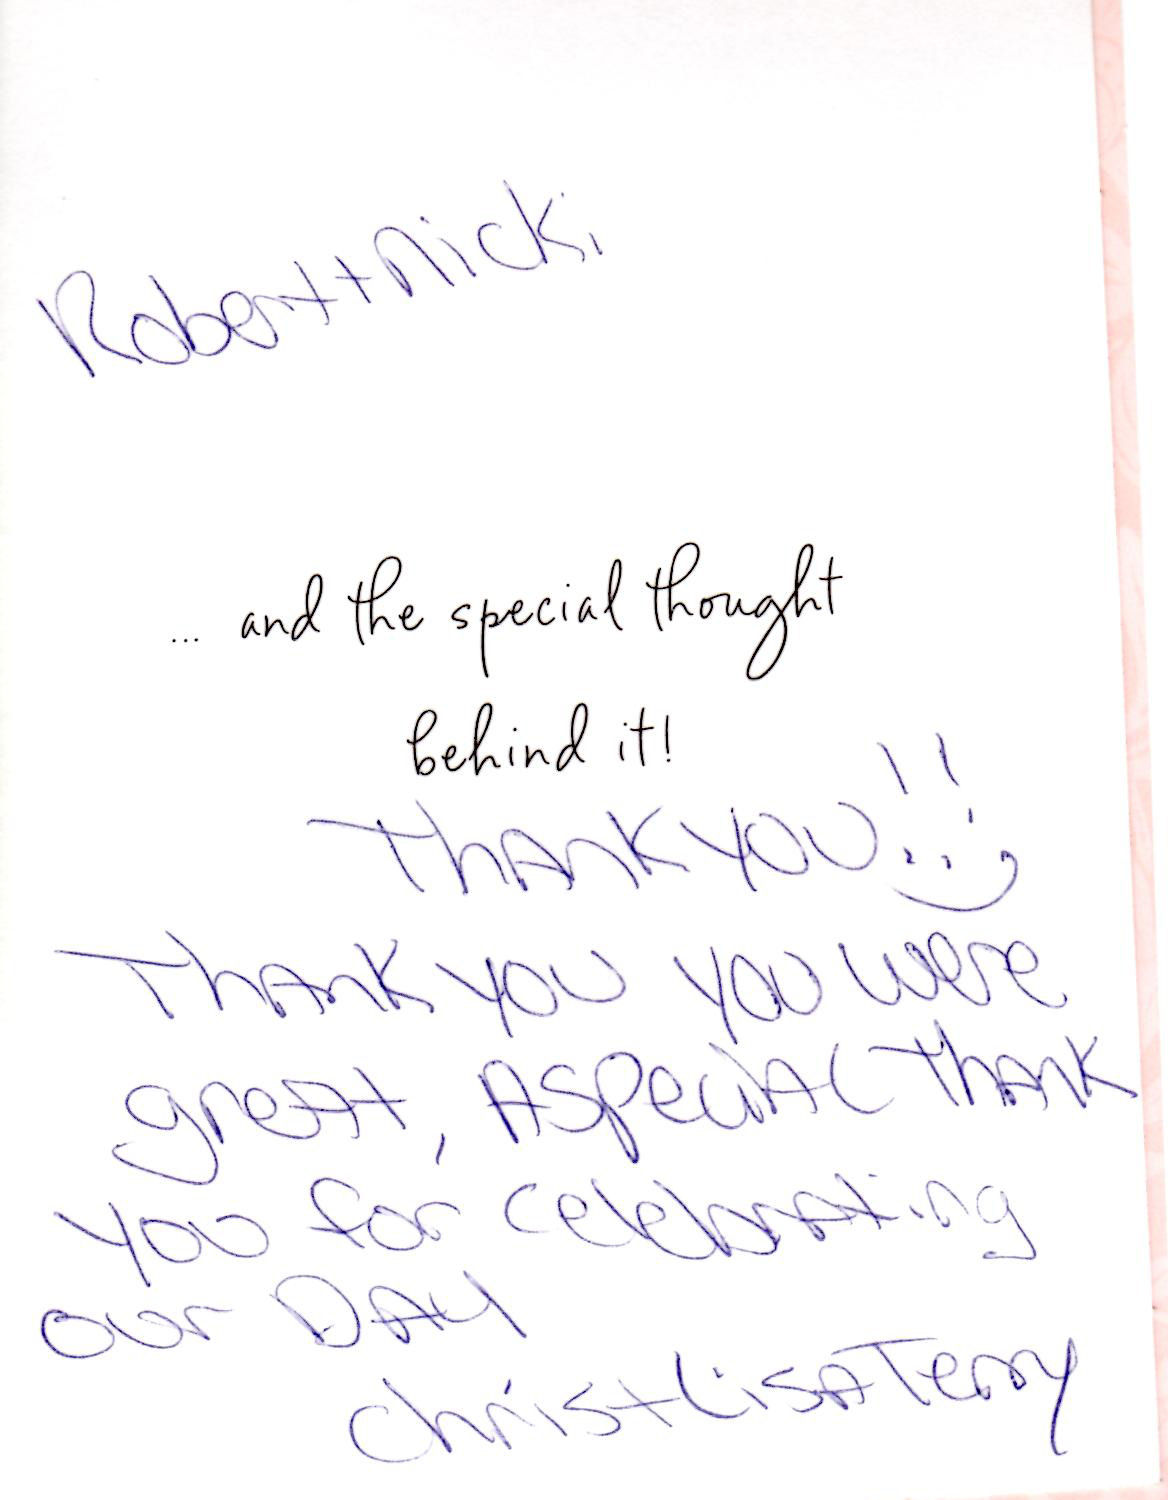 Robert + Nick,
... and the special thought
behind it!
Thank you!!
Thank you you were
great, A special Thank
you for celebrating
our Day
Chris + Lisa Terry